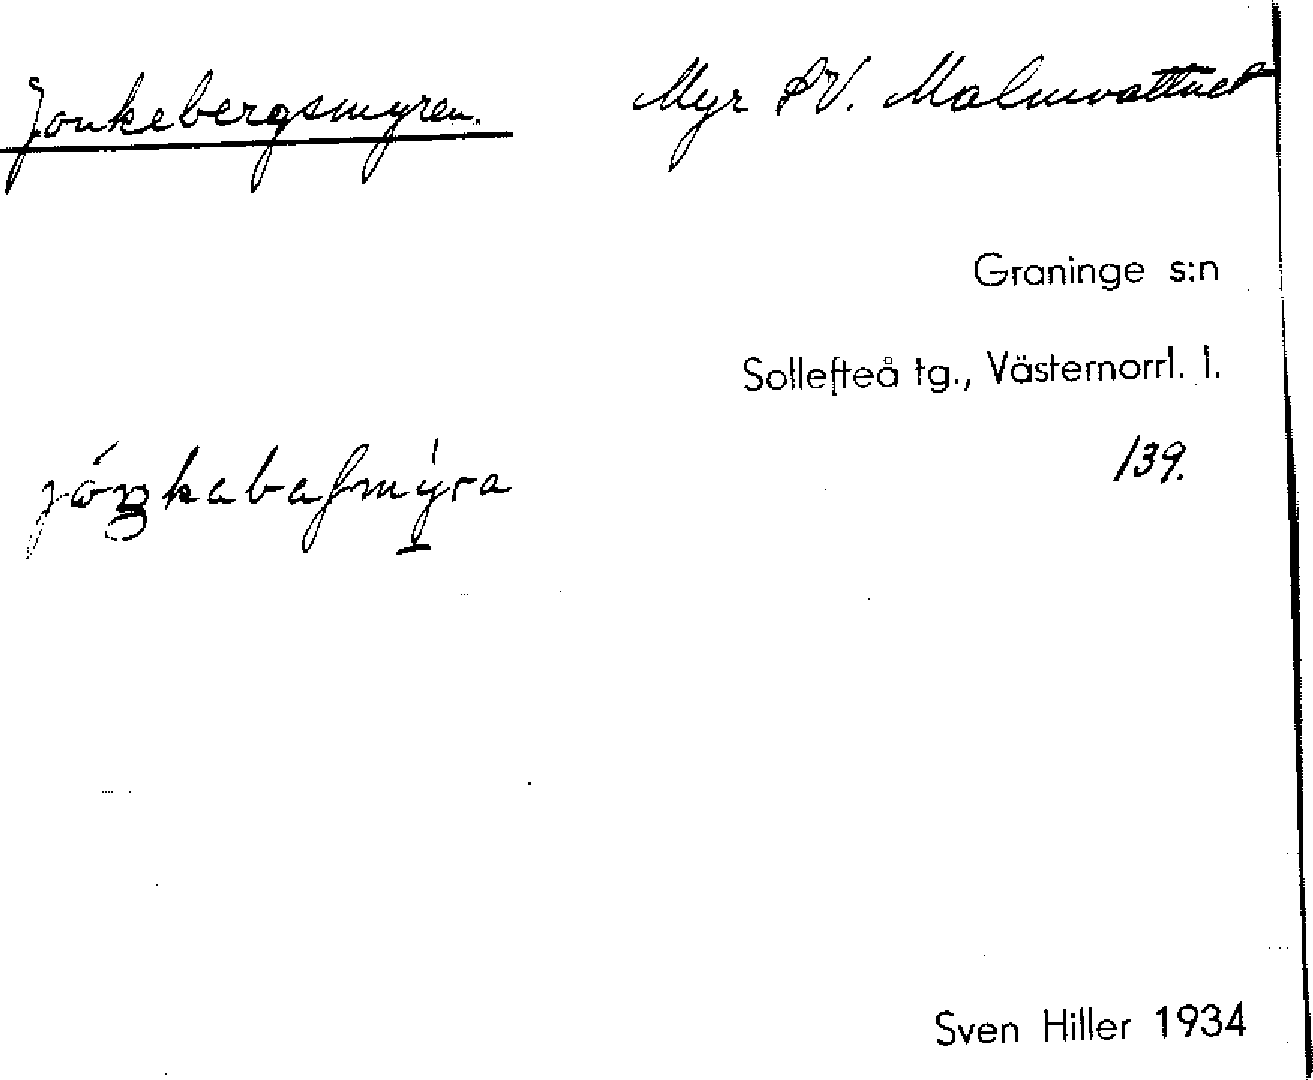 Jonkebergsmyren. Myr SV. Malmvattnet
Graninge s:n
Sollefteå tg., Västernorrl. l.
139.
Sven Hiller 1934